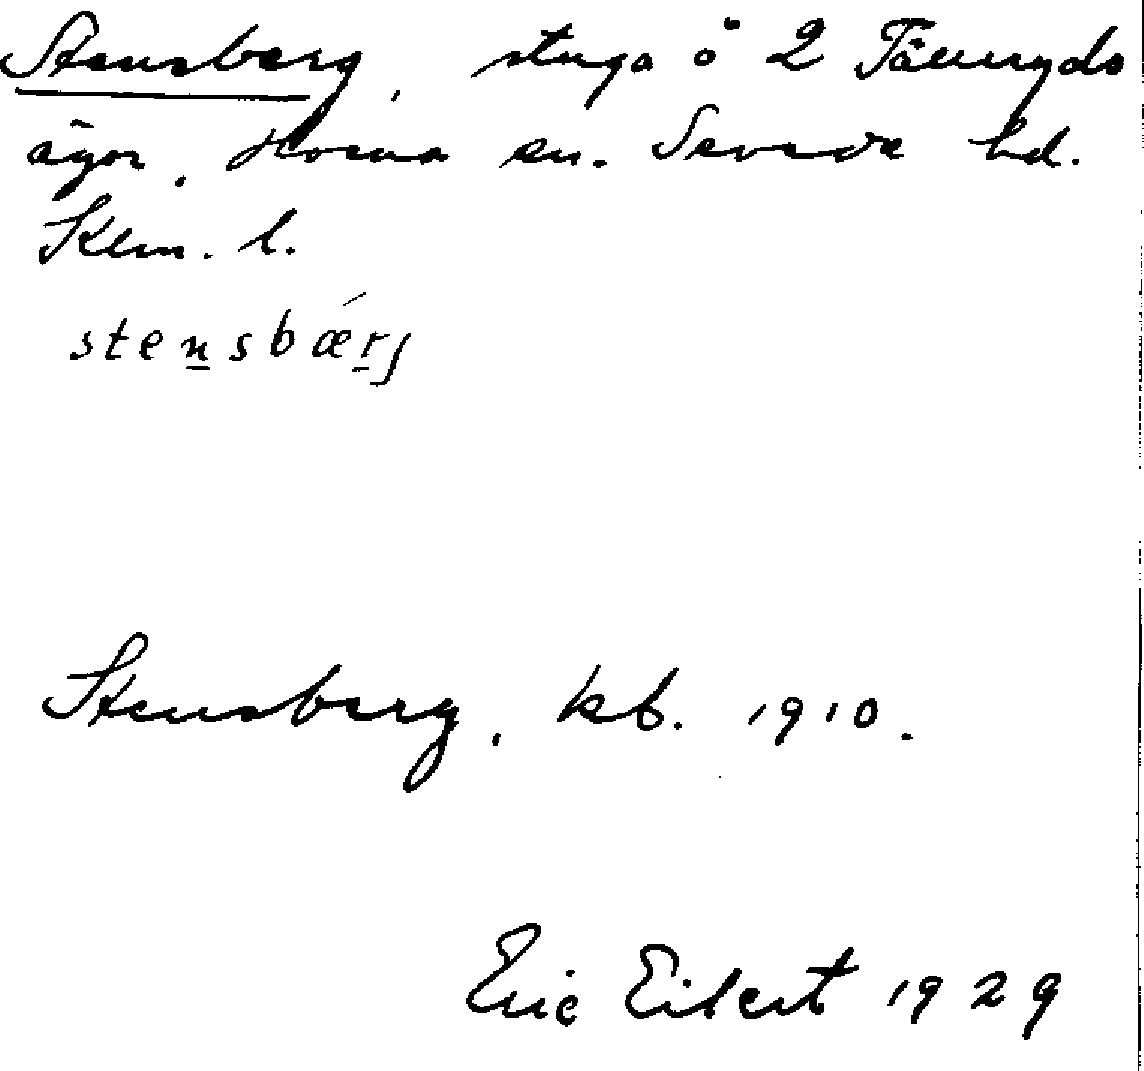 Stensberg, stuga å 2 Tälleryds
ägor, Hvena sn. Sevede hd.
Klm. l.
stensbǽrj
Stensberg, kb. 1910.
Eric Eilert 1929